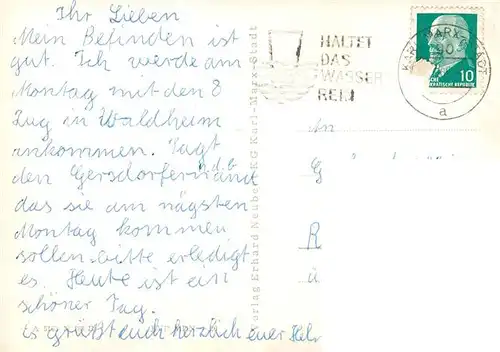 Ihr Lieben
Mein Befinden ist
gut. Ich werde am
Montag mit den 8
Zug in Waldheim
ankommen. Sagt
den Gersdorfern
das sie am nägsten
Montag kommen
sollen bitte erledigt
es. Heute ist ein
schöner Tag.
es grüßt euch herzlich euer
HALTET
DAS
WASSER
REIN
KARL-MARX-STADT
a
10
An
G
R
ü
Verlag Erhard Neubert KG Karl-Marx-Stadt